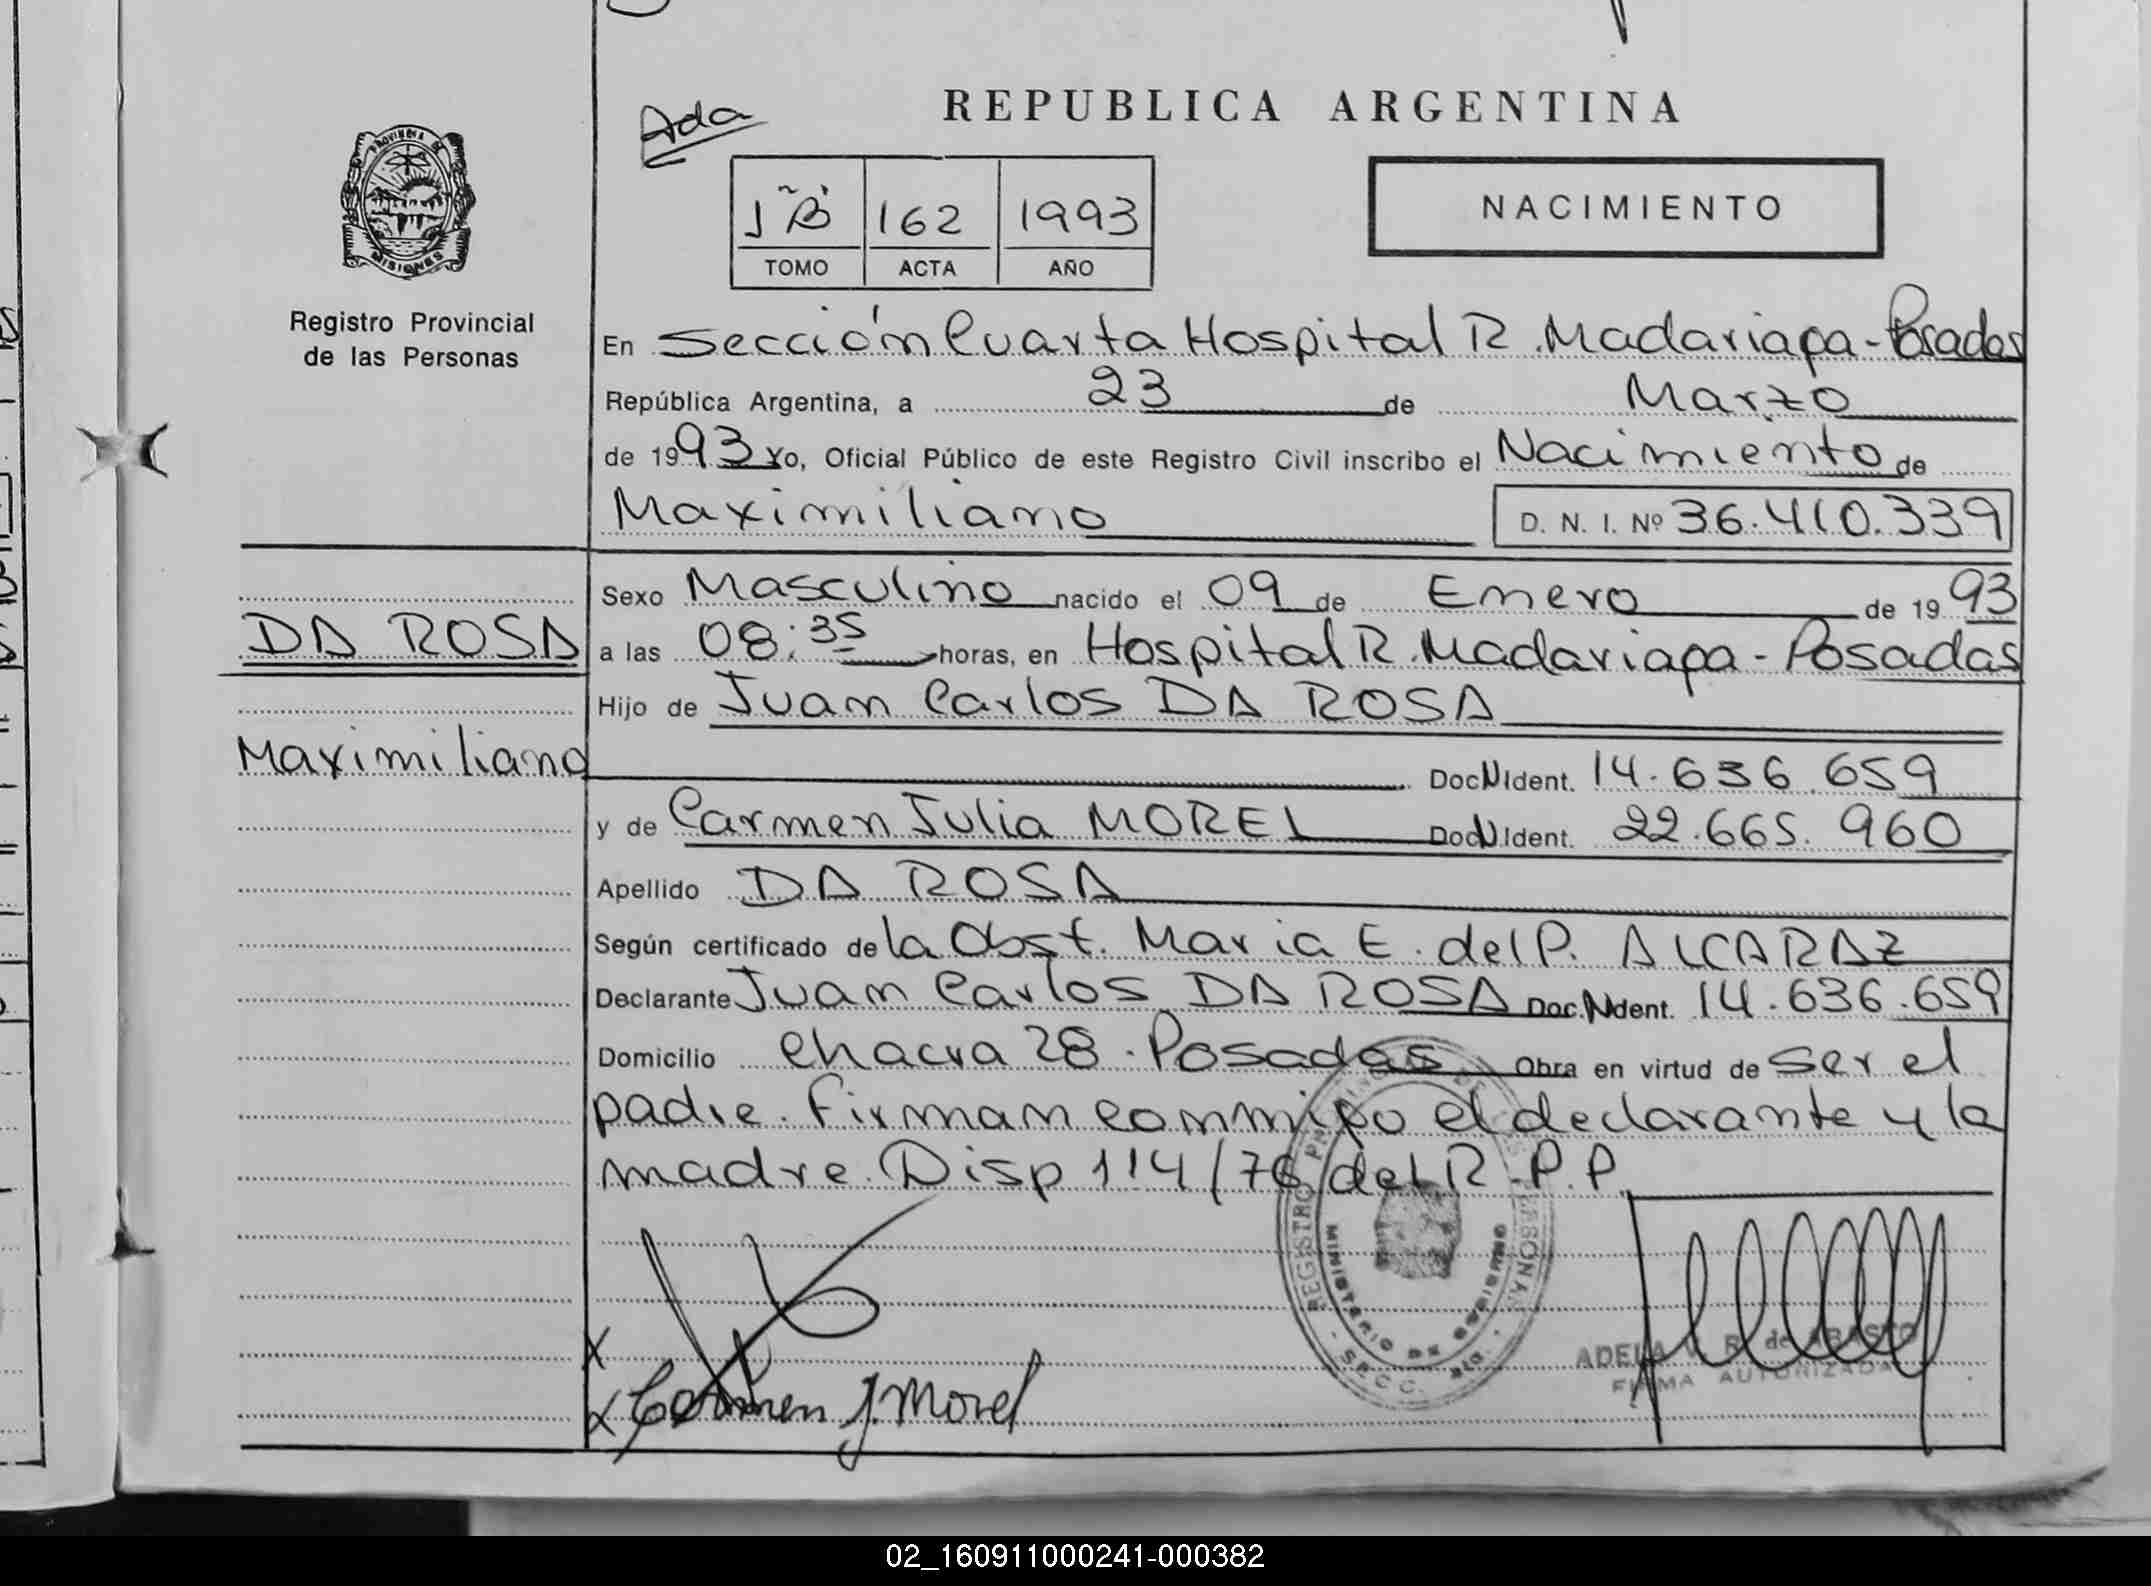 Ada
REPUBLICA ARGENTINA
PROVINCIA DE
MISIONES
162 1993
TOMO ACTA AÑO
NACIMIENTO
Registro Provincial
de las Personas
En Sección Cuarta Hospital R. Madariaga - Posadas
República Argentina, a 23 de Marzo
de 1993 Yo, Oficial Público de este Registro Civil inscribo el Nacimiento de
Maximiliano D. N. I. Nº 36.410.339
Sexo Masculino nacido el 09 de Enero de 1993
DA ROSA
a las 08:35 horas, en Hospital R. Madariaga - Posadas
Hijo de Juan Carlos DA ROSA
Maximiliano
Doc N Ident. 14.636.659
y de Carmen Julia MOREL Doc N Ident. 22.665.960
Apellido DA ROSA
Según certificado de la Obst. Maria E. del P. ALCARAZ
Declarante Juan Carlos DA ROSA Doc. N Ident. 14.636.659
Domicilio Chacra 28 - Posadas Obra en virtud de ser el
padre. Firman conmigo el declarante y la
madre. Disp 114/76 del R.P.P.
REGISTRO PERSONAS
MINISTERIO DE GOBIERNO
ADELA V. R. de ABASTO
FIRMA AUTORIZADA
X
X Carmen J. Morel
02_160911000241-000382